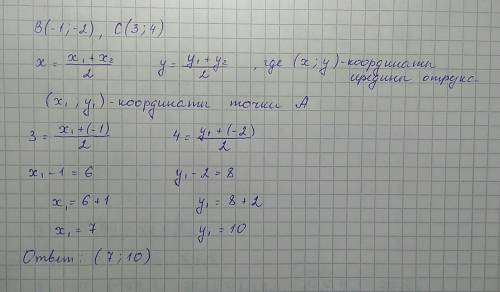 B(-1;-2), C(3;4)
x = (x₁+x₂)/2 y = (y₁+y₂)/2, где (x;y)-координаты
средины отрезк.
(x₁;y₁)-координаты точки A
3 = (x₁+(-1))/2 4 = (y₁+(-2))/2
x₁-1=6 y₁-2=8
x₁=6+1 y₁=8+2
x₁=7 y₁=10
Ответ: (7;10)